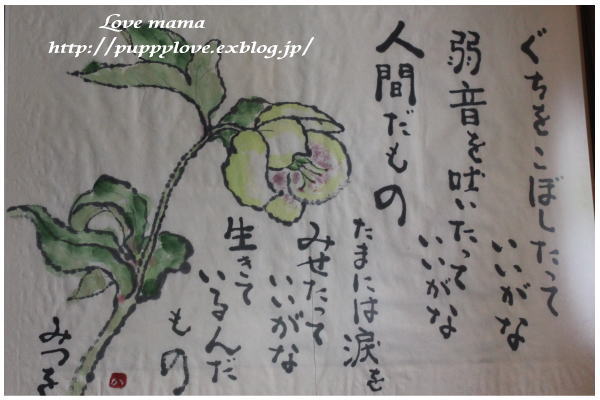 Love mama
http://puppylove.exblog.jp/
ぐちをこぼしたって
いいがな
弱音を吐いたって
いいがな
人間だもの
たまには涙を
みせたって
いいがな
生きて
いるんだ
もの
みつを
か